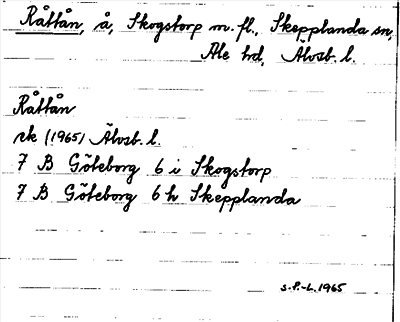 Råttån, å, Skogstorp m.fl., Skepplanda sn,
Ale hd, Älvsb. l.
Råttån
rk (1965) Älvsb. l.
7 B Göteborg 6 i Skogstorp
7 B Göteborg 6 h Skepplanda
S.P.-L. 1965